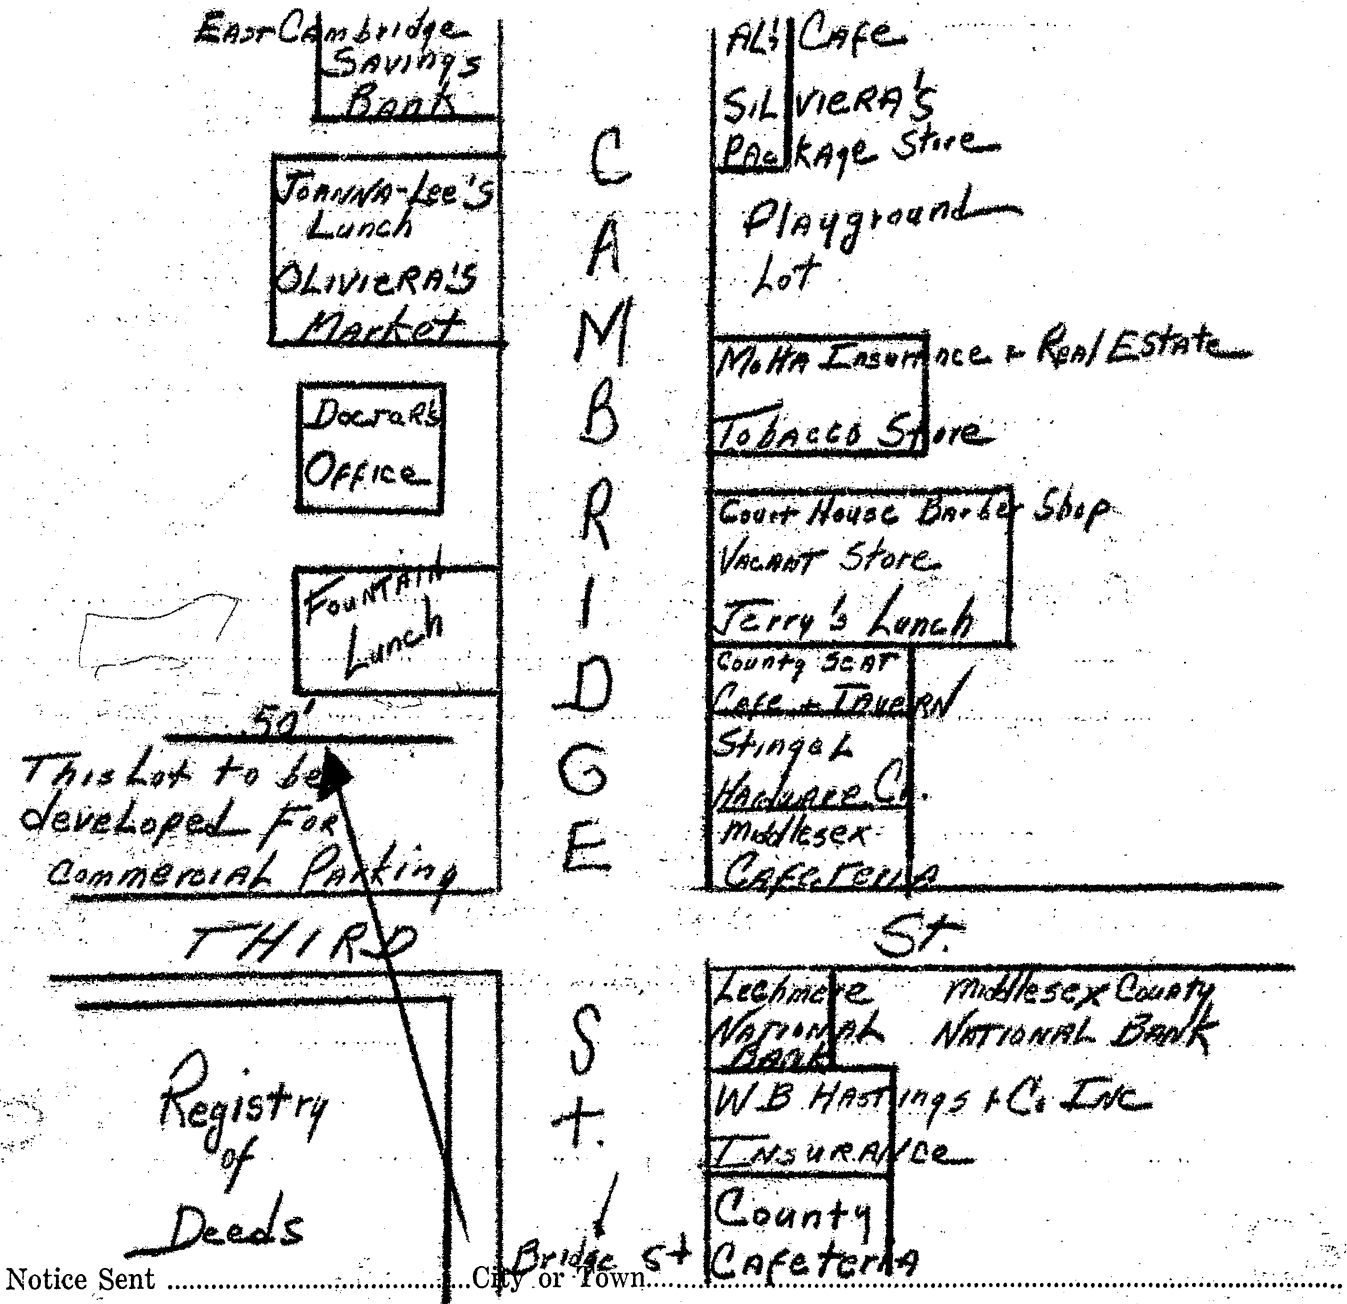 East Cambridge
Savings
Bank
Joanna-Lee's
Lunch
Oliviera's
Market
Doctor's
Office
Fountain
Lunch
50'
This Lot to be
developed For
Commercial Parking
CAMBRIDGE
St.
Al's Cafe
Silviera's
Package Store
Playground
Lot
Insurance + Real Estate
Tobacco Store
Court House Barber Shop
Vacant Store
Jerry's Lunch
County Seat
Cafe + Tavern
Stingel
Hardware Co.
Middlesex
Cafeteria
THIRD St.
Registry
of
Deeds
Bridge St
Lechmere
National
Bank
Middlesex County
National Bank
W B Hastings + Co. Inc
Insurance
County
Cafeteria
Notice Sent ........................................ City or Town........................................